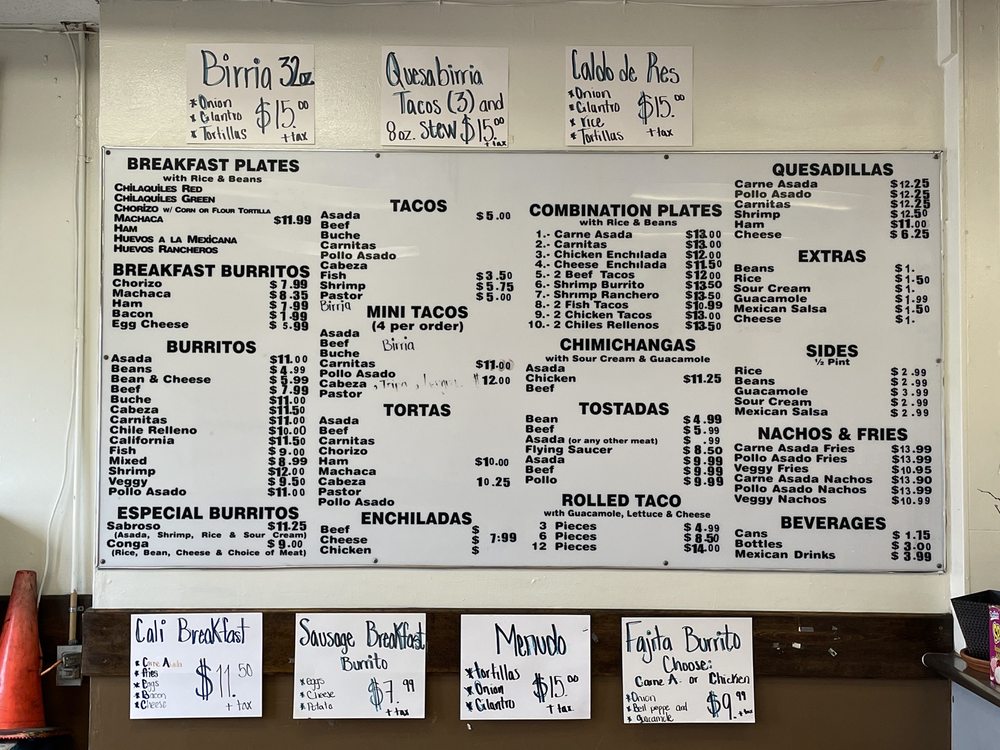 Birria 32oz
* Onion
* Cilantro
* Tortillas
$15.00
+ tax
Quesabirria
Tacos (3) and
8oz. stew $15.00
+ tax
Caldo de Res
* Onion
* Cilantro
* rice
* Tortillas
$15.00
+ tax
BREAKFAST PLATES
with Rice & Beans
CHILAQUILES RED
CHILAQUILES GREEN
CHORIZO W/ CORN OR FLOUR TORTILLA
MACHACA $11.99
HAM
HUEVOS A LA MEXICANA
HUEVOS RANCHEROS
BREAKFAST BURRITOS
Chorizo $7.99
Machaca $8.35
Ham $7.99
Bacon $7.99
Egg Cheese $5.99
BURRITOS
Asada $11.00
Beans $4.99
Bean & Cheese $5.99
Beef $7.99
Buche $11.00
Cabeza $11.50
Carnitas $11.00
Chile Relleno $10.00
California $11.50
Fish $9.00
Mixed $8.99
Shrimp $12.00
Veggy $9.50
Pollo Asado $11.00
ESPECIAL BURRITOS
Sabroso $11.25
(Asada, Shrimp, Rice & Sour Cream)
Conga $9.00
(Rice, Bean, Cheese & Choice of Meat)
TACOS
Asada $5.00
Beef
Buche
Carnitas
Pollo Asado
Cabeza
Fish $3.50
Shrimp $5.75
Pastor $5.00
Birria
MINI TACOS
(4 per order)
Asada
Beef Birria
Buche
Carnitas $11.00
Pollo Asado
Cabeza, Tripa, Lengua $12.00
Pastor
TORTAS
Asada
Beef
Carnitas
Chorizo
Ham $10.00
Machaca
Cabeza 10.25
Pastor
Pollo Asado
ENCHILADAS
Beef $
Cheese $ 7:99
Chicken $
COMBINATION PLATES
with Rice & Beans
1.- Carne Asada $13.00
2.- Carnitas $13.00
3.- Chicken Enchilada $12.00
4.- Cheese Enchilada $11.50
5.- 2 Beef Tacos $12.00
6.- Shrimp Burrito $13.50
7.- Shrimp Ranchero $13.50
8.- 2 Fish Tacos $10.99
9.- 2 Chicken Tacos $13.00
10.- 2 Chiles Rellenos $13.50
CHIMICHANGAS
with Sour Cream & Guacamole
Asada
Chicken $11.25
Beef
TOSTADAS
Bean $4.99
Beef $5.99
Asada (or any other meat) $ .99
Flying Saucer $8.50
Asada $9.99
Beef $9.99
Pollo $9.99
ROLLED TACO
with Guacamole, Lettuce & Cheese
3 Pieces $4.99
6 Pieces $8.50
12 Pieces $14.00
QUESADILLAS
Carne Asada $12.25
Pollo Asado $12.25
Carnitas $12.25
Shrimp $12.50
Ham $11.00
Cheese $6.25
EXTRAS
Beans $1.
Rice $1.50
Sour Cream $1.
Guacamole $1.99
Mexican Salsa $1.50
Cheese $1.
SIDES
½ Pint
Rice $2.99
Beans $2.99
Guacamole $3.99
Sour Cream $2.99
Mexican Salsa $2.99
NACHOS & FRIES
Carne Asada Fries $13.99
Pollo Asado Fries $13.99
Veggy Fries $10.95
Carne Asada Nachos $13.90
Pollo Asado Nachos $13.99
Veggy Nachos $10.99
BEVERAGES
Cans $1.75
Bottles $3.00
Mexican Drinks $3.99
Cali Breakfast
* Carne Asada
* fries
* Eggs
* Bacon
* Cheese
$11.50
+ tax
Sausage Breakfast
Burrito
* eggs
* Cheese
* Potato
$7.99
+ tax
Menudo
* Tortillas
* Onion
* Cilantro
$15.00
+ tax
Fajita Burrito
Choose:
Carne A. or Chicken
* Onion
* Bell peppe and
* guacamole
$9.99
+ tax